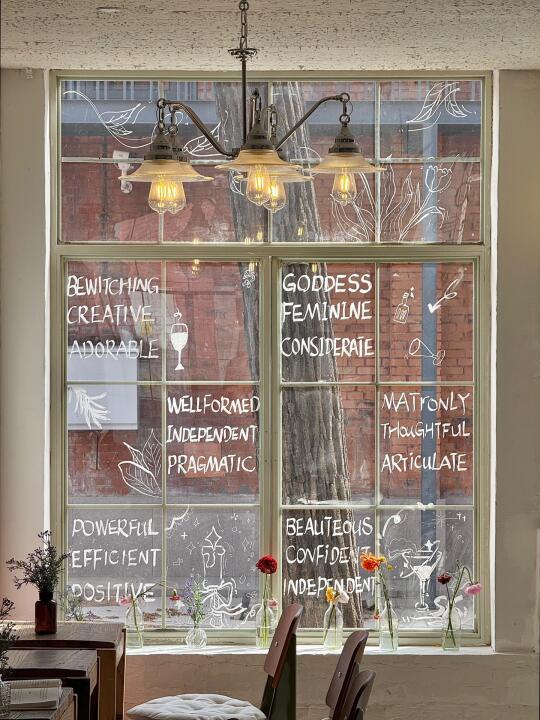 BEWITCHING
CREATIVE
ADORABLE
GODDESS
FEMININE
CONSIDERATE
WELLFORMED
INDEPENDENT
PRAGMATIC
MATRONLY
THOUGHTFUL
ARTICULATE
POWERFUL
EFFICIENT
POSITIVE
BEAUTEOUS
CONFIDENT
INDEPENDENT